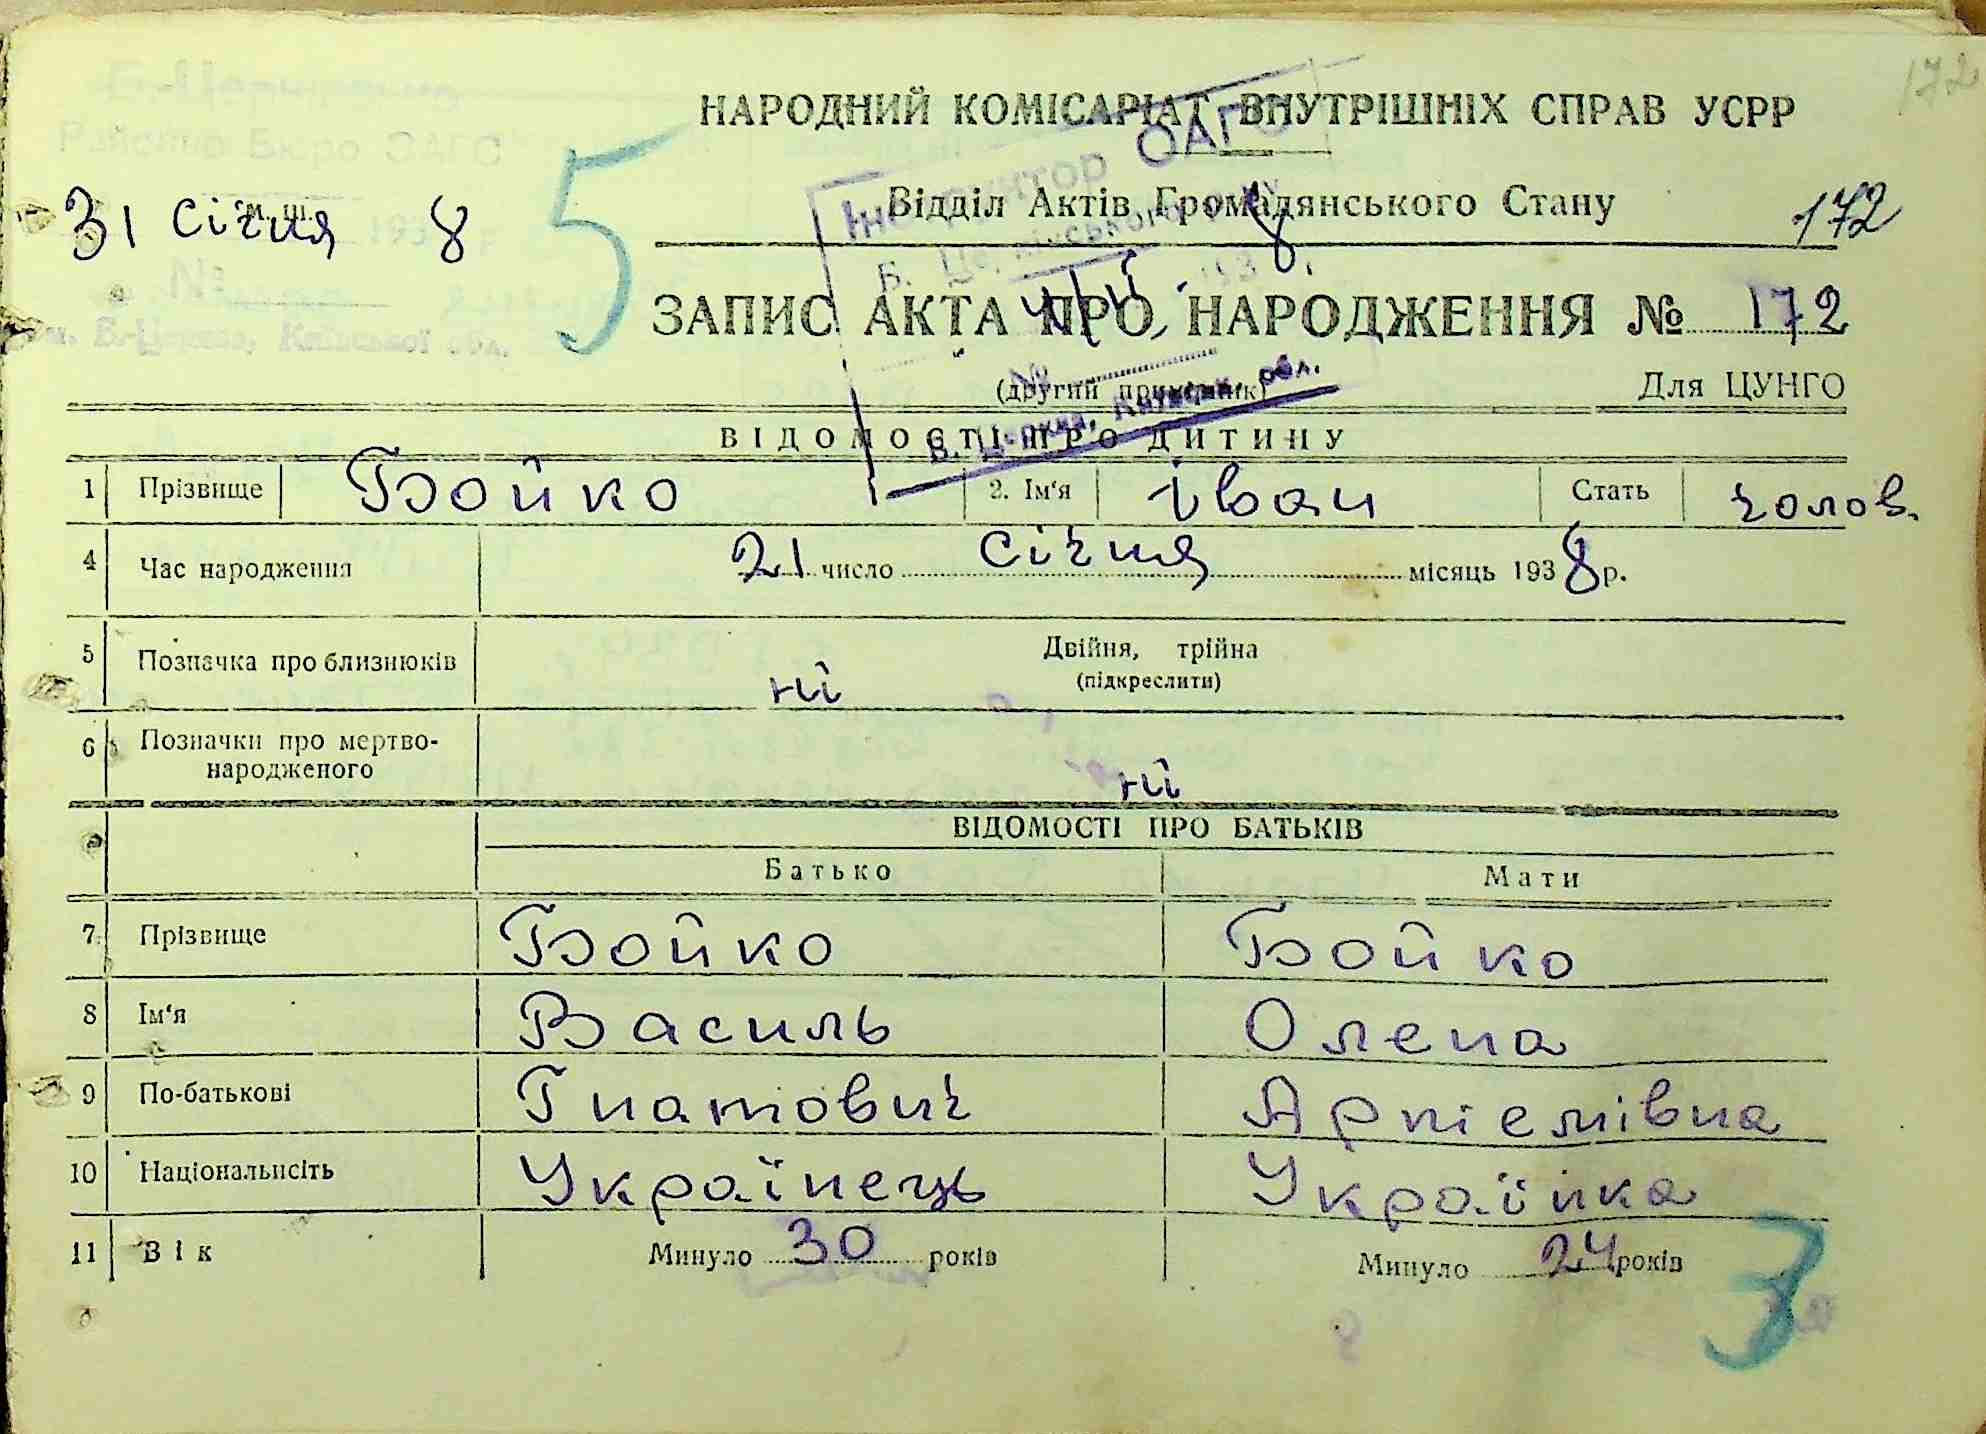 172
НАРОДНИЙ КОМІСАРІАТ ВНУТРІШНІХ СПРАВ УСРР
Районне Бюро ЗАГС
Відділ Актів Громадянського Стану
31 січня 8
172
5
Інспектор ОАГС
ЗАПИС АКТА ПРО НАРОДЖЕННЯ № 172
м. Б-Церква, Київської обл.
(другий примірник)
Для ЦУНГО
Б. Церква, обл.
ВІДОМОСТІ ПРО ДИТИНУ
1 Прізвище Бойко 2. Ім‘я Іван Стать чолов.
4 Час народження 21 число січня місяць 1938 р.
5 Позначка про близнюків ні Двійня, трійна
(підкреслити)
6 Позначки про мертво-
народженого ні
ВІДОМОСТІ ПРО БАТЬКІВ
Батько Мати
7 Прізвище Бойко Бойко
8 Ім‘я Василь Олена
9 По-батькові Гнатович Артемівна
10 Національнсіть Українець Українка
11 Вік Минуло 30 років Минуло 24 років
3